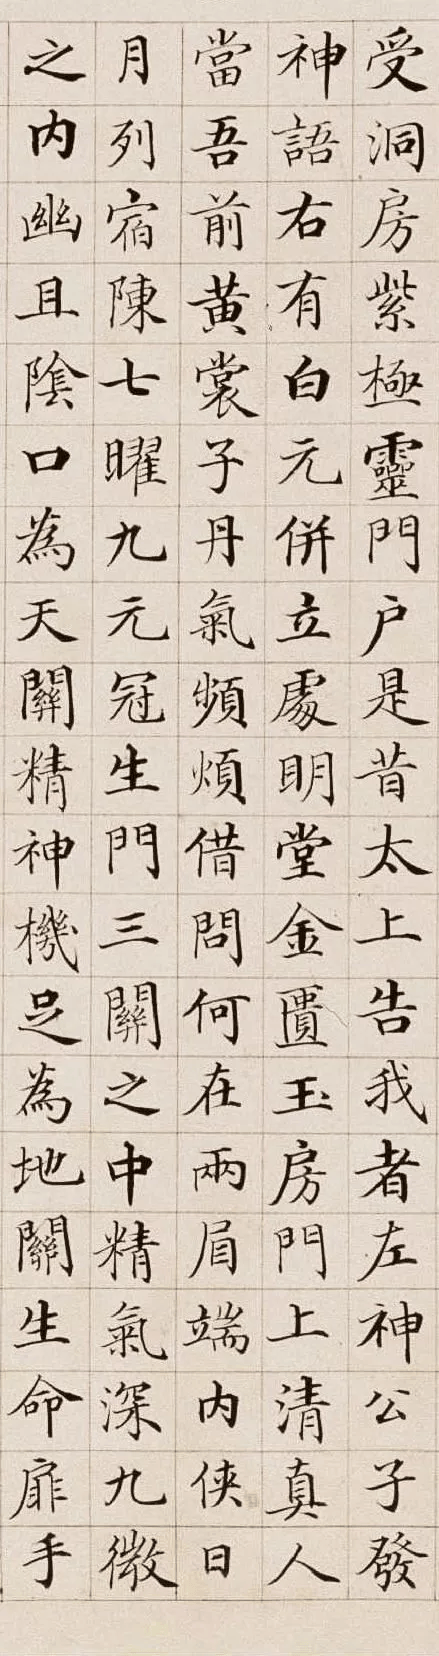 受洞房紫極靈門户是昔太上告我者左神公子發
神語右有白元併立處明堂金匱玉房門上清真人
當吾前黄裳子丹氣頻煩借問何在兩眉端内俠日
月列宿陳七曜九元冠生門三關之中精氣深九微
之内幽且陰口為天關精神機足為地關生命扉手